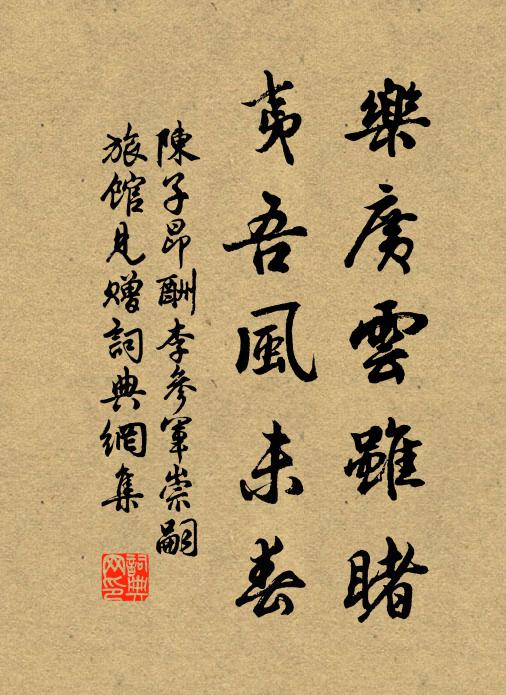 樂廣雲雖睹
夷吾風未春
陳子昂酬李參軍崇嗣
旅館見贈詞典網集
詞典網印